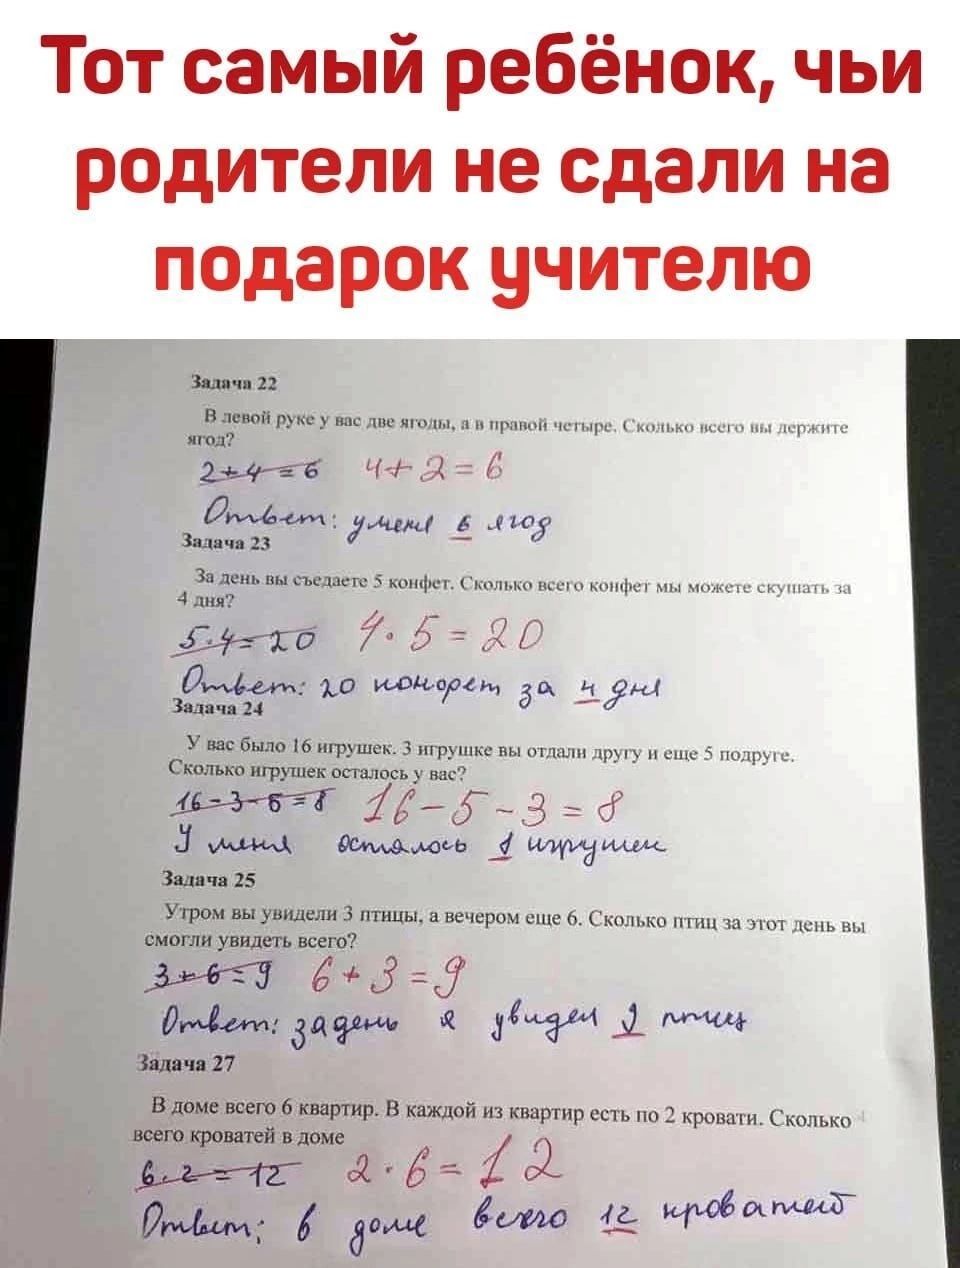 Тот самый ребёнок, чьи
родители не сдали на
подарок учителю
Задача 22
В левой руке у вас две ягоды, а в правой четыре. Сколько всего вы держите
ягод?
2+4=6 4+2=6
Ответ: у меня 6 ягод
Задача 23
За день вы съедаете 5 конфет. Сколько всего конфет мы можете скушать за
4 дня?
5·4=20 4·5=20
Ответ: 20 за 4 дня
Задача 24
У вас было 16 игрушек. 3 игрушке вы отдали другу и еще 5 подруге.
Сколько игрушек осталось у вас?
16-3-5=8 16-5-3=8
У меня осталось 8 игрушек
Задача 25
Утром вы увидели 3 птицы, а вечером еще 6. Сколько птиц за этот день вы
смогли увидеть всего?
3+6=9 6+3=9
Ответ: за день я увидел 9 птиц
Задача 27
В доме всего 6 квартир. В каждой из квартир есть по 2 кровати. Сколько
всего кроватей в доме
6·2=12 2·6=12
Ответ: в доме всего 12 кроватей